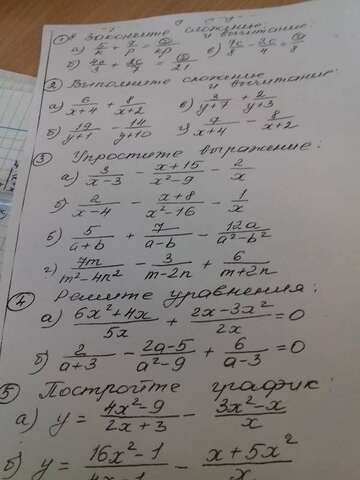 ① Закончите сложение и вычитание:
② Выполните сложение и вычитание:
а) 6/(x+4) + 8/(x+2) в) 2/(y+7) + 2/(y+3)
б) 14/(y+1) - 14/(y+10) г) 7/(x+4) - 8/(x+2)
③ Упростите выражение:
а) 3/(x-3) - (x+15)/(x²-9) - 2/x
б) 2/(x-4) - (x+8)/(x²-16) - 1/x
б) 5/(a+b) + 7/(a-b) - 12a/(a²-b²)
г) 7m/(m²-4n²) - 3/(m-2n) + 6/(m+2n)
④ Решите уравнения:
а) (6x²+4x)/5x + (2x-3x²)/2x = 0
б) 2/(a+3) - (2a-5)/(a²-9) + 6/(a-3) = 0
⑤ Постройте график:
а) y = (4x²-9)/(2x+3) - (3x²-x)/x
б) y = (16x²-1)/(4x-1) - (x+5x²)/x